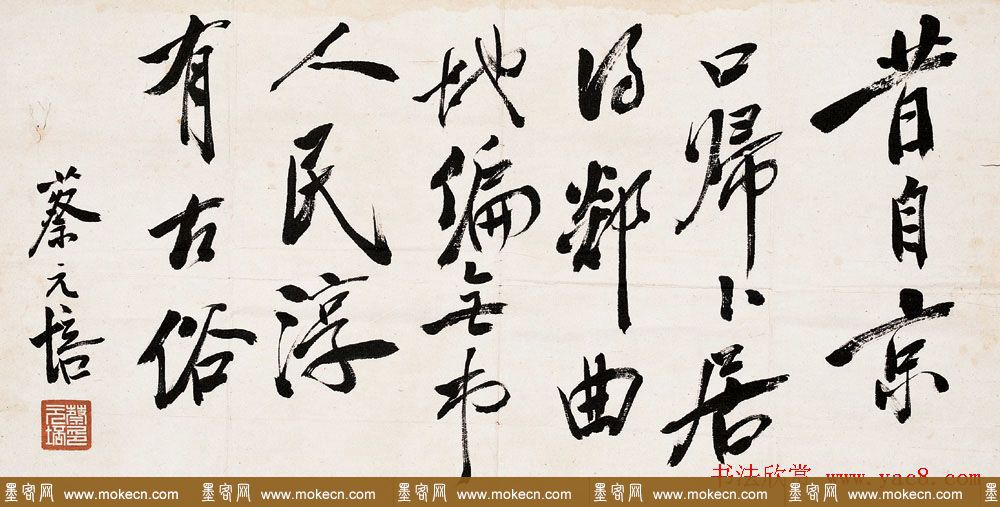 昔自京
口歸卜居
得鄰曲
地偏無市
人民淳
有古俗
蔡元培
蔡印元培
书法欣赏 www.yac8.com
墨客网 www.mokecn.com 墨客网 www.mokecn.com 墨客网 www.mokecn.com 墨客网 www.mokecn.com 墨客网 www.mokecn.com